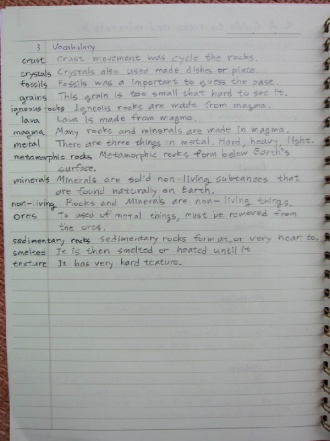 3 Vocabulary
crust Crust movement was cycle the rocks.
crystals Crystals also used made dishes or place.
fossils Fossils was a important to guess the past.
grains This grain is too small that hard to see it.
igneous rocks Igneous rocks are made from magma.
lava Lava is made from magma.
magma Many rocks and minerals are made in magma.
metal There are three things in metal. Hard, heavy, light.
metamorphic rocks Metamorphic rocks form below Earth's
surface.
minerals Minerals are solid non-living substances that
are found naturally on Earth.
non-living Rocks and Minerals are non-living things.
ores To used of metal things, must be removed from
the ores.
sedimentary rocks sedimentary rocks format or very near to.
smelted It is then smelted or heated until it
texture It has very hard texture.